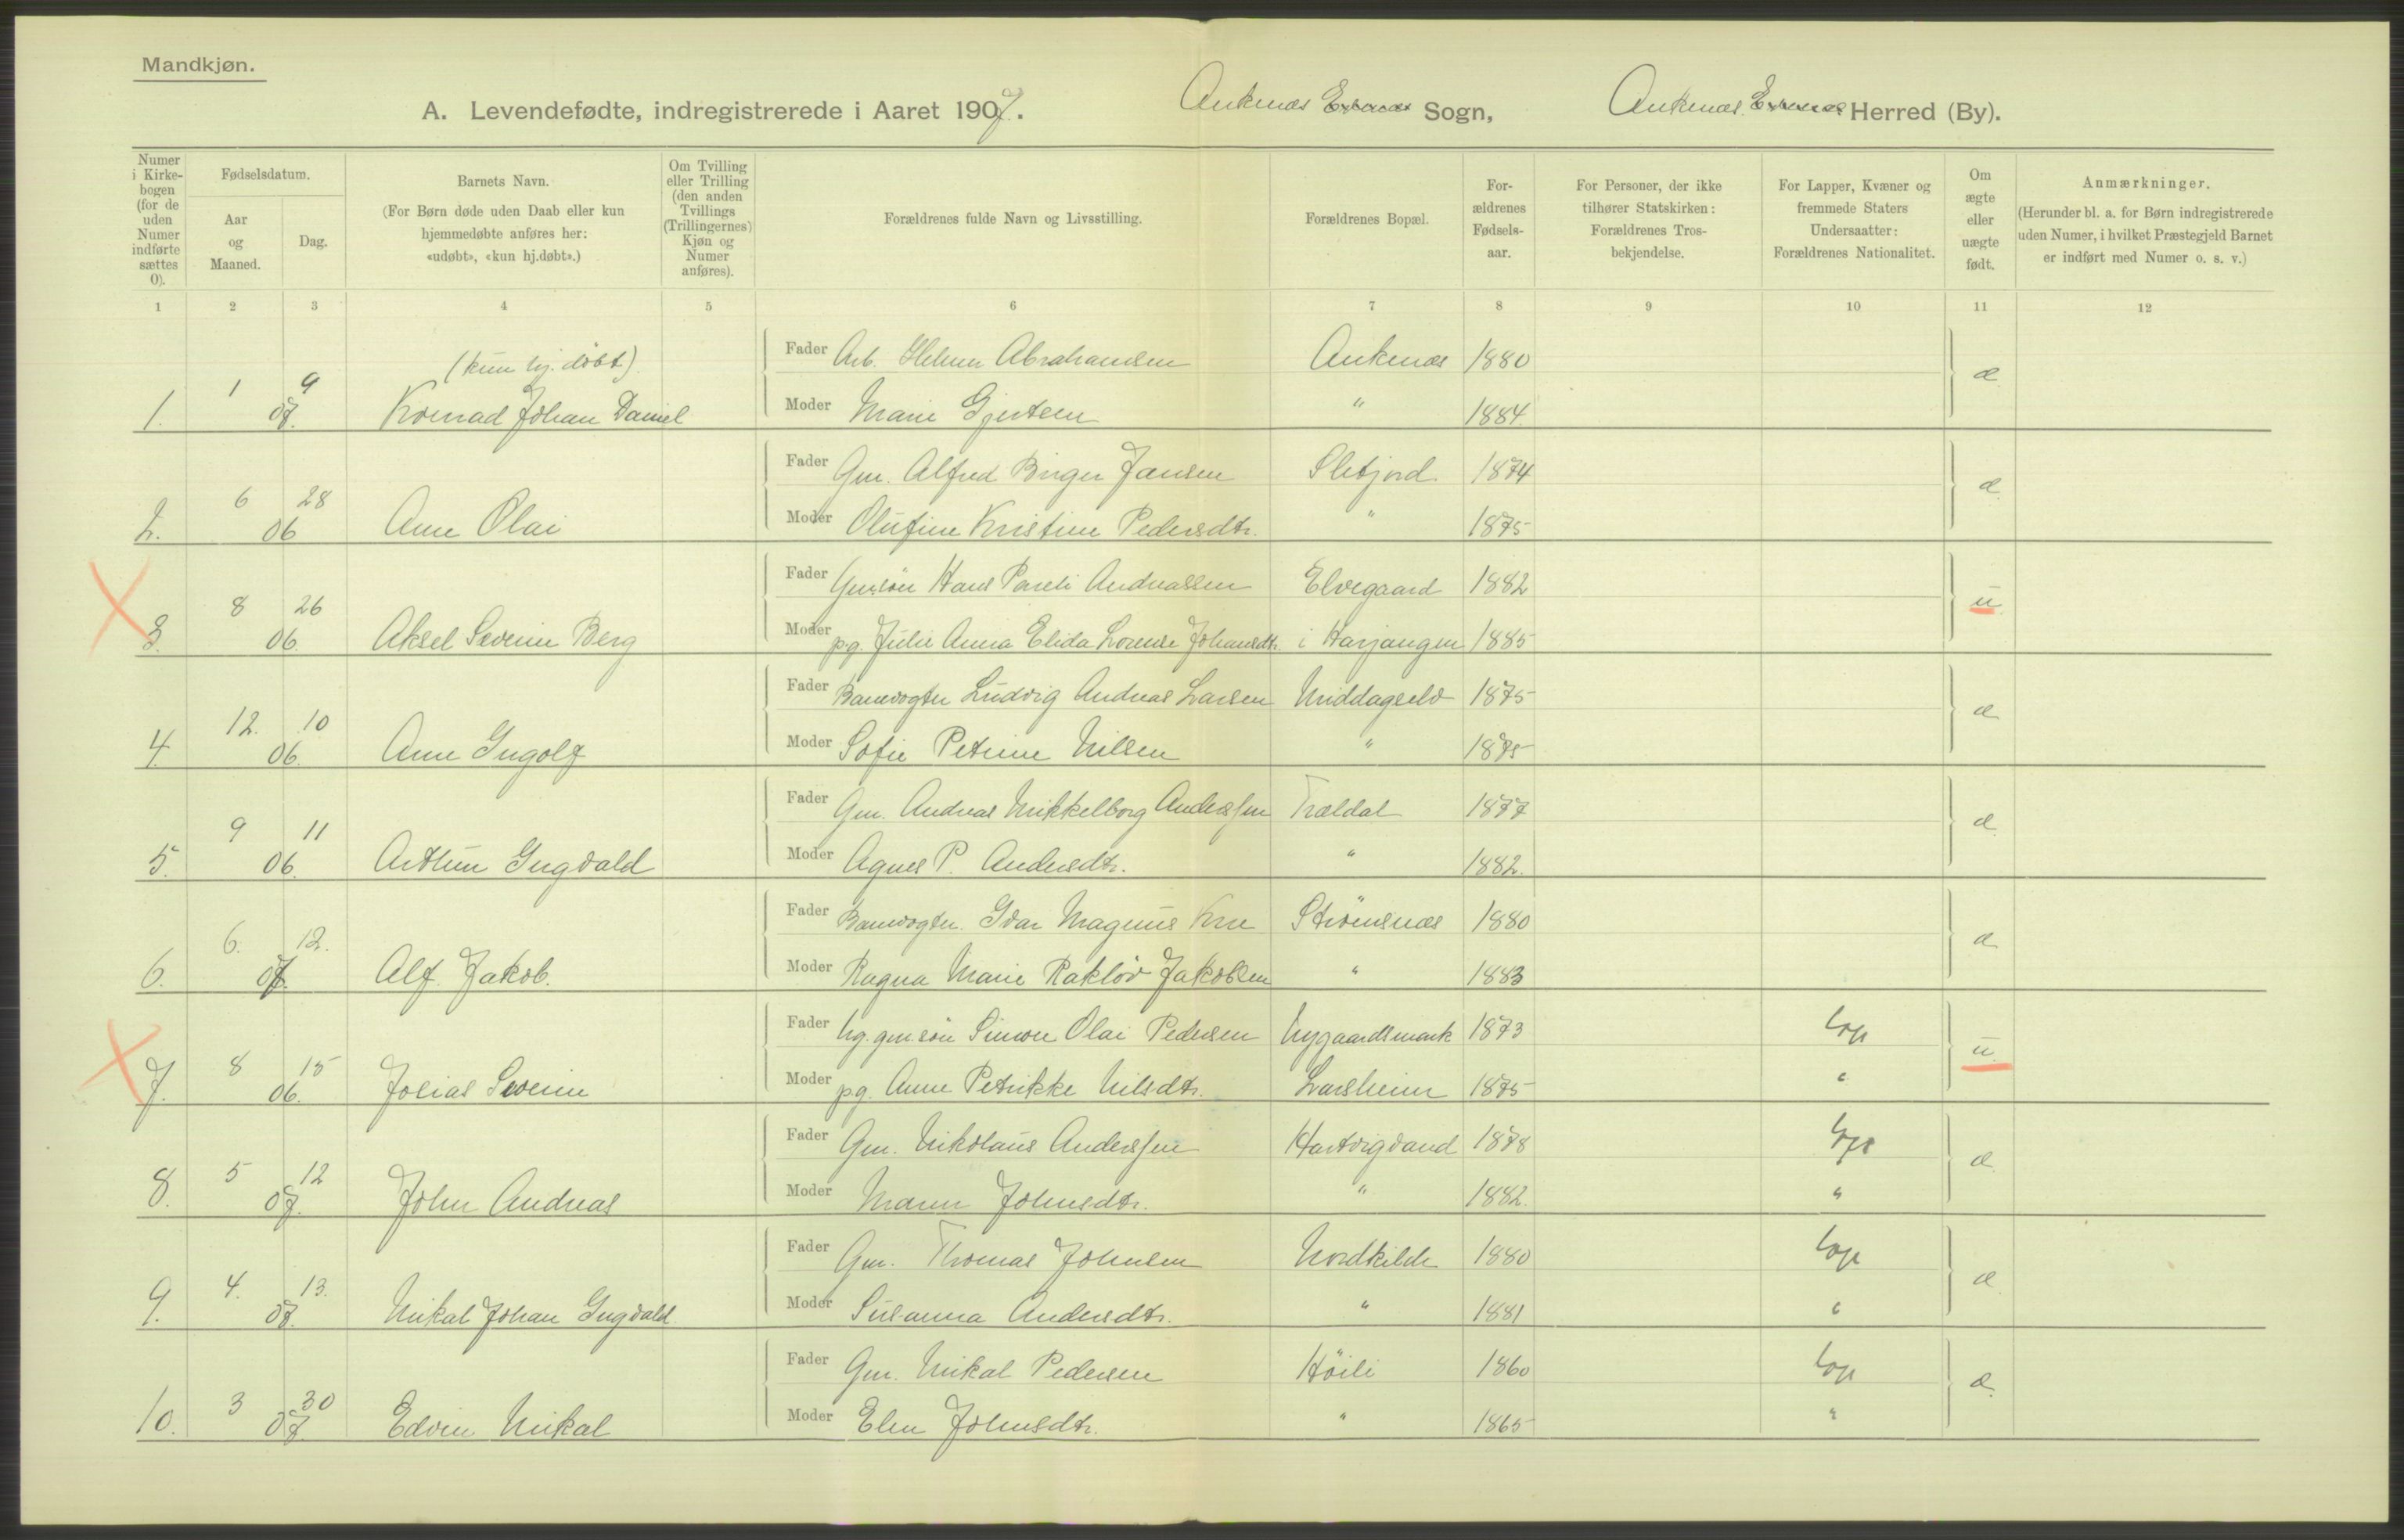 Mandkjøn.
A. Levendefødte, indregistrerede i Aaret 1907. Ankenæs Sogn, Ankenæs Herred (By).
Numer i Kirkebogen (for de uden Numer indførte sættes 0).
Fødselsdatum.
Aar og Maaned.
Dag.
Barnets Navn.
(For Børn døde uden Daab eller kun hjemmedøbte anføres her: «udøbt», «kun hj.døbt».)
Om Tvilling eller Trilling (den anden Tvillings (Trillingernes) Kjøn og Numer anføres).
Forældrenes fulde Navn og Livsstilling.
Forældrenes Bopæl.
Forældrenes Fødselsaar.
For Personer, der ikke tilhører Statskirken: Forældrenes Trosbekjendelse.
For Lapper, Kvæner og fremmede Staters Undersaatter: Forældrenes Nationalitet.
Om ægte eller uægte født.
Anmærkninger.
(Herunder bl. a. for Børn indregistrerede uden Numer, i hvilket Præstegjeld Barnet er indført med Numer o. s. v.)
1 2 3 4 5 6 7 8 9 10 11 12
(kun hj. döbt)
Fader Arb. Helmer Abrahamsen Ankenæs 1880 æ
1. 1 9 07. Konrad Johan Daniel Moder Marie Gjertsen " 1884
Fader Gm. Alfred Birger Jansen Sletjord 1874 æ
2. 6 28 06 Arne Olai Moder Olufine Kristine Pedersdtr. " 1875
Fader Gm.sön Hans Pareli Andreassen Elvegaard 1882 u
3. 8 26 06. Aksel Severin Berg Moder pg. Julie Anna Elida Lorense Johansdtr. i Harjangen 1885
Fader Banevogter Ludvig Andreas Larsen Middagselv 1875 æ
4. 12. 10 06. Arne Ingolf Moder Sofie Petrine Nilsen " 1875
Fader Gm. Andreas Mikkelborg Anderssen Trældal 1877 æ
5. 9 11 06. Arthur Ingvald Moder Agnes P. Andersdtr. " 1882.
Fader Banevogter. Ivar Magnus Strömsnæs 1880 æ
6. 6. 12. 07. Alf Jakob. Moder Ragna Marie Rakløv Jakobsen " 1883
Fader Ug. gm.sön Simon Olai Pedersen Nygaardsmark 1873 Lap u
7. 8 15 06. Josias Severin Moder pg. Anne Petrikke Nilsdtr. Larsheim 1875 "
Fader Gm. Nikolaus Anderssen Hartvigvand 1878 Lap æ
8. 5 12 07. John Andreas Moder Maren Johnsdtr. " 1882. "
Fader Gm. Thomas Johnsen Nordkilde 1880 Lap æ
9. 4. 13. 07. Mikal Johan Ingvald Moder Susanna Andersdtr. " 1881 "
Fader Gm. Mikal Pedersen Höili 1860 Lap æ
10. 3 30 07 Edvin Mikal Moder Elen Johnsdtr. " 1865 "